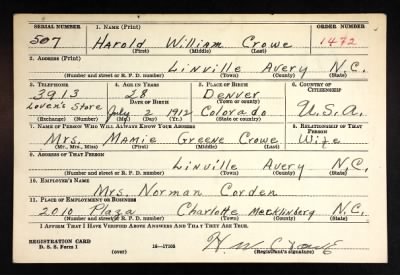 SERIAL NUMBER 1. NAME (Print) ORDER NUMBER
507 Harold William Crowe 1472
(First) (Middle) (Last)
2. ADDRESS (Print)
Linville Avery N.C.
(Number and street or R. F. D. number) (Town) (County) (State)
3. TELEPHONE 4. AGE IN YEARS 5. PLACE OF BIRTH 6. COUNTRY OF CITIZENSHIP
3913 28 Denver
DATE OF BIRTH (Town or county)
Loven's Store July 2 1912 Colorado U.S.A.
(Exchange) (Number) (Mo.) (Day) (Yr.) (State or country)
7. NAME OF PERSON WHO WILL ALWAYS KNOW YOUR ADDRESS 8. RELATIONSHIP OF THAT PERSON
Mrs. Mamie Greene Crowe Wife
(Mr., Mrs., Miss) (First) (Middle) (Last)
9. ADDRESS OF THAT PERSON
Linville Avery N.C.
(Number and street or R. F. D. number) (Town) (County) (State)
10. EMPLOYER'S NAME
Mrs. Norman Corden
11. PLACE OF EMPLOYMENT OR BUSINESS
2010 Plaza Charlotte Mecklinberg N.C.
(Number and street or R. F. D. number) (Town) (County) (State)
I AFFIRM THAT I HAVE VERIFIED ABOVE ANSWERS AND THAT THEY ARE TRUE.
REGISTRATION CARD
D. S. S. Form 1 (over) 16—17105 H. W. Crowe
(Registrant's signature)